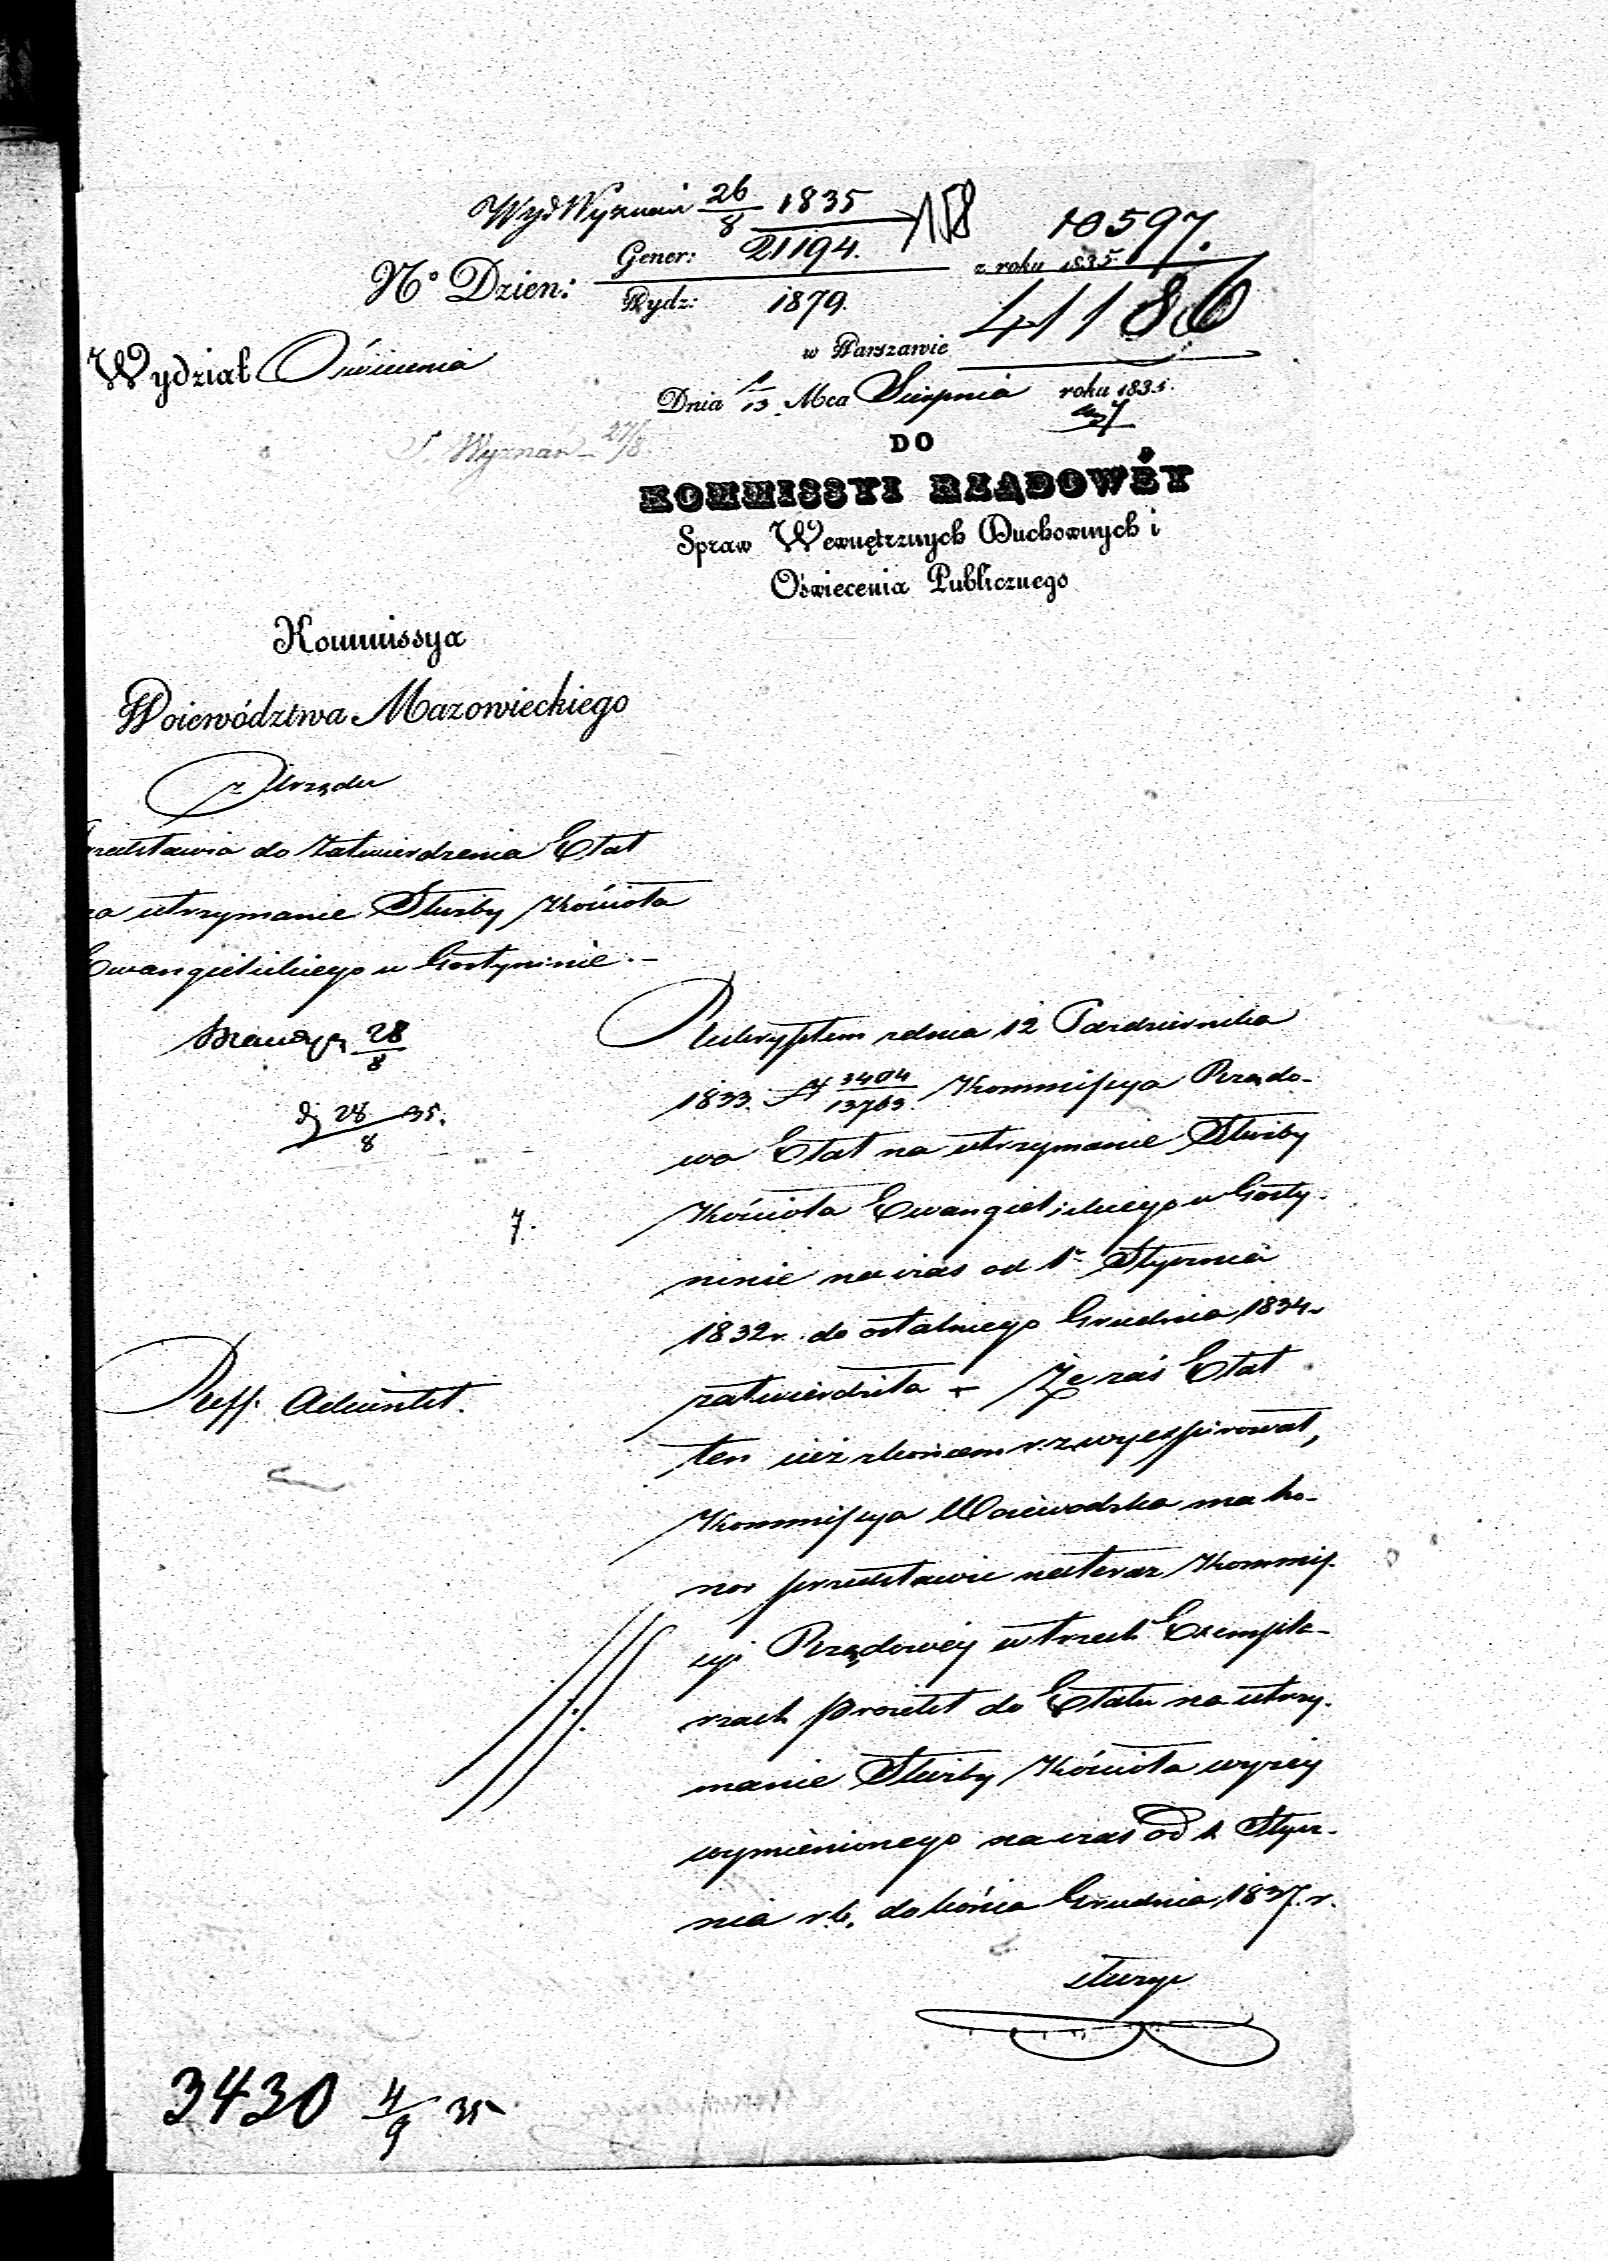 Wyd Wyznań 26/8 1835
158
10597.
N° Dzien: Gener: 21194. z roku 1835.
Wydz: 1879.
41186
w Warszawie
Wydział Oświecenia
Dnia 1/13 Mca Sierpnia roku 1835.
S. Wyznań 27/8.
DO
KOMMISSYI RZĄDOWÉY
Spraw Wewnętrznych Duchownych i
Oświecenia Publicznego
Kommissya
Woiewództwa Mazowieckiego
z Urzędu
Przedstawia do zatwierdzenia Etat
na utrzymanie Służby Kościoła
Ewangielickiego w Gostyninie.-
28/8
dj 28/8 35.
7.
Reff. Adiunkt.
Reskryptem z dnia 12 Pazdziernika
1833. N 3404/13763. Kommissya Rządo-
wa Etat na utrzymanie Służby
Kościoła Ewangielickiego w Gosty-
ninie na czas od 1° Stycznia
1832 r. do ostatniego Grudnia 1834.
zatwierdziła - Że zaś Etat
ten iuż z końcem r. z. wyexpirował,
Kommissya Woiewodzka ma ho-
nor przedstawić na teraz Kommis-
syi Rządowéy w trzech Exempla-
rzach proiekt do Etatu na utrzy-
manie Służby Kościoła wyżéy
wymienionego na czas od 1 Stycz-
nia r. b. do końca Grudnia 1837. r.
służyć
3430 4/9 35